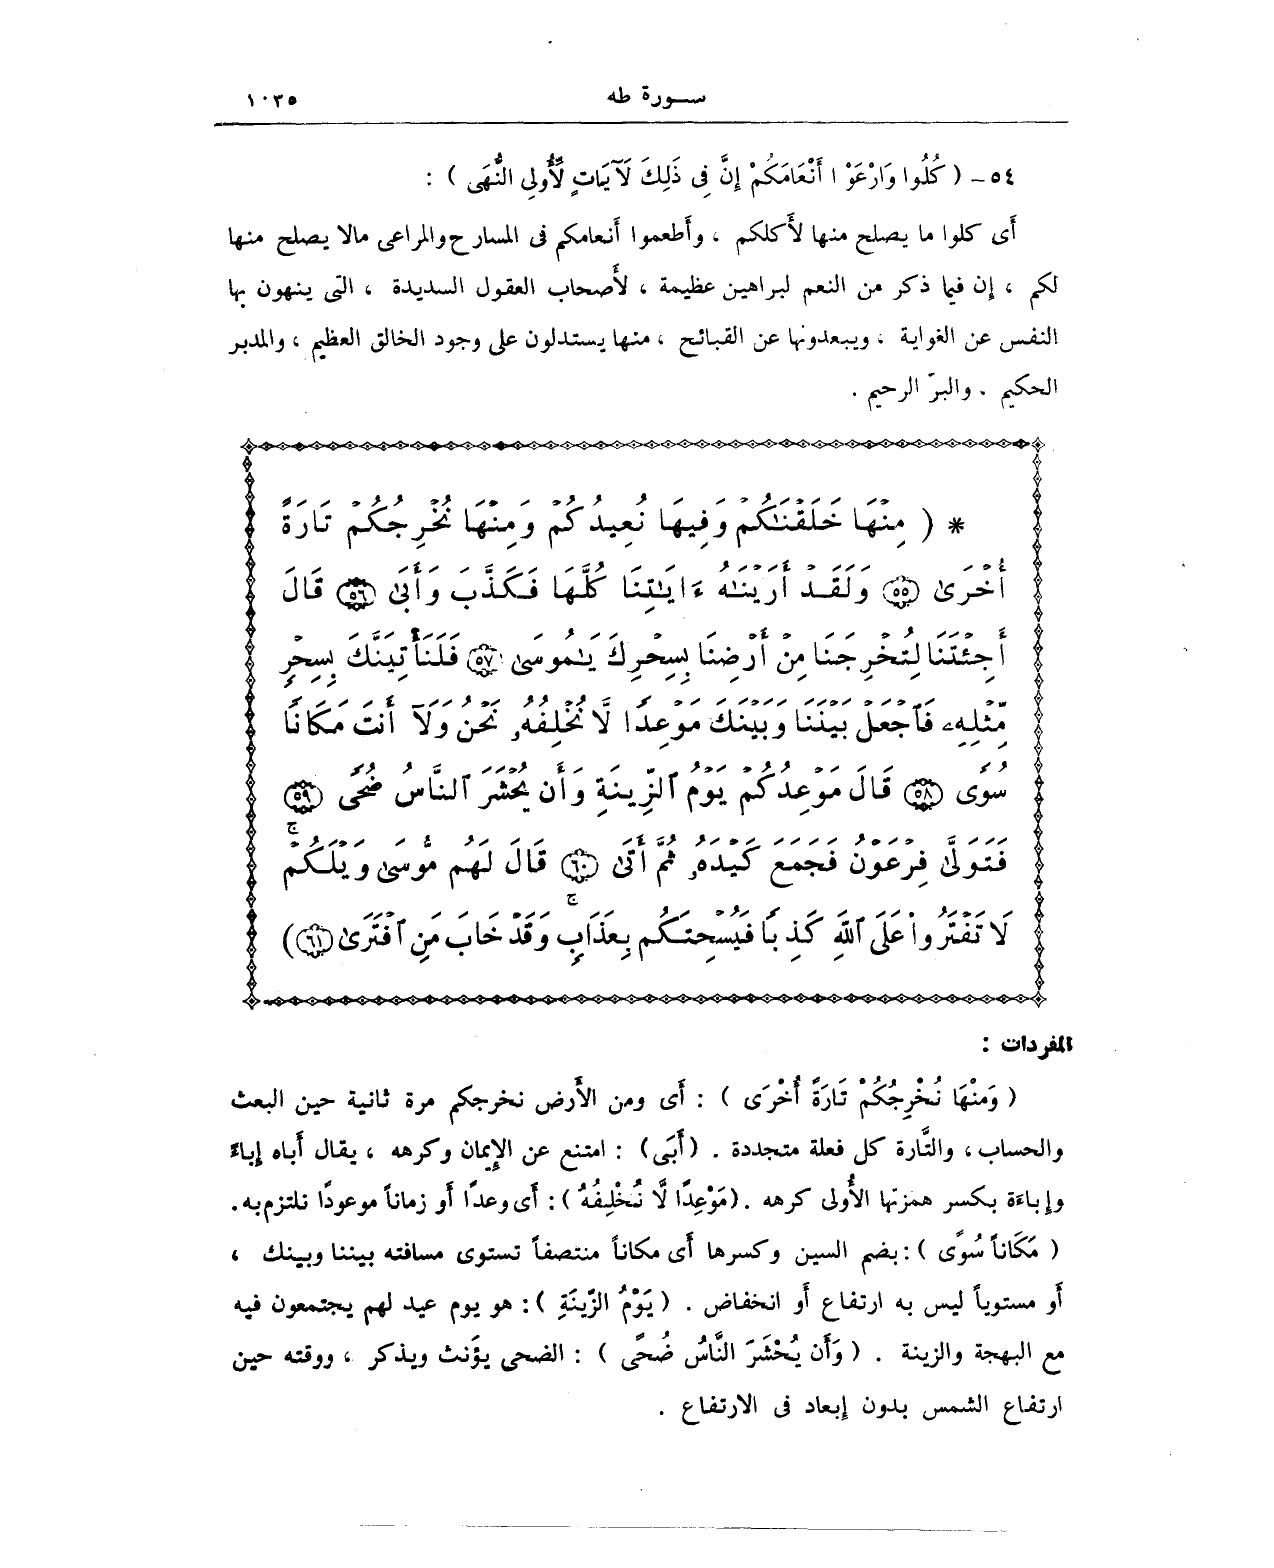 سورة طه ١٠٣٥
٥٤ـ ( كُلُوا وَارْعَوْا أَنْعَامَكُمْ إِنَّ فِى ذَلِكَ لَآيَاتٍ لِّأُولِى النُّهَى ) :
أى كلوا ما يصلح منها لأكلكم ، وأطعموا أنعامكم فى المسارح والمراعى مالا يصلح منها
لكم ، إن فيما ذكر من النعم لبراهين عظيمة ، لأصحاب العقول السديدة ، التى ينهون بها
النفس عن الغواية ، ويبعدونها عن القبائح ، منها يستدلون على وجود الخالق العظيم ، والمدبر
الحكيم . والبرّ الرحيم .
* ( مِنْهَا خَلَقْنَٰكُمْ وَفِيهَا نُعِيدُكُمْ وَمِنْهَا نُخْرِجُكُمْ تَارَةً
أُخْرَىٰ ﴿٥٥﴾ وَلَقَدْ أَرَيْنَٰهُ ءَايَٰتِنَا كُلَّهَا فَكَذَّبَ وَأَبَىٰ ﴿٥٦﴾ قَالَ
أَجِئْتَنَا لِتُخْرِجَنَا مِنْ أَرْضِنَا بِسِحْرِكَ يَٰمُوسَىٰ ﴿٥٧﴾ فَلَنَأْتِيَنَّكَ بِسِحْرٍ
مِّثْلِهِۦ فَٱجْعَلْ بَيْنَنَا وَبَيْنَكَ مَوْعِدًا لَّا نُخْلِفُهُۥ نَحْنُ وَلَآ أَنتَ مَكَانًا
سُوًى ﴿٥٨﴾ قَالَ مَوْعِدُكُمْ يَوْمُ ٱلزِّينَةِ وَأَن يُحْشَرَ ٱلنَّاسُ ضُحًى ﴿٥٩﴾
فَتَوَلَّىٰ فِرْعَوْنُ فَجَمَعَ كَيْدَهُۥ ثُمَّ أَتَىٰ ﴿٦٠﴾ قَالَ لَهُم مُّوسَىٰ وَيْلَكُمْ
لَا تَفْتَرُوا۟ عَلَى ٱللَّهِ كَذِبًا فَيُسْحِتَكُم بِعَذَابٍ ۖ وَقَدْ خَابَ مَنِ ٱفْتَرَىٰ ﴿٦١﴾ )
المفردات :
( وَمِنْهَا نُخْرِجُكُمْ تَارَةً أُخْرَى ) : أى ومن الأرض نخرجكم مرة ثانية حين البعث
والحساب ، والتَّارة كل فعلة متجددة . ( أَبَى ) : امتنع عن الإيمان وكرهه ، يقال أباه إباءً
وإباءة بكسر همزتها الأُولى كرهه . ( مَوْعِدًا لَّا نُخْلِفُهُ ) : أى وعدًا أو زماناً موعودًا نلتزم به .
( مَكَاناً سُوًى ) : بضم السين وكسرها أى مكاناً منتصفاً تستوى مسافته بيننا وبينك ،
أو مستوياً ليس به ارتفاع أو انخفاض . ( يَوْمُ الزِّينَةِ ) : هو يوم عيد لهم يجتمعون فيه
مع البهجة والزينة . ( وَأَن يُحْشَرَ النَّاسُ ضُحًى ) : الضحى يؤنث ويذكر ، ووقته حين
ارتفاع الشمس بدون إبعاد فى الارتفاع .